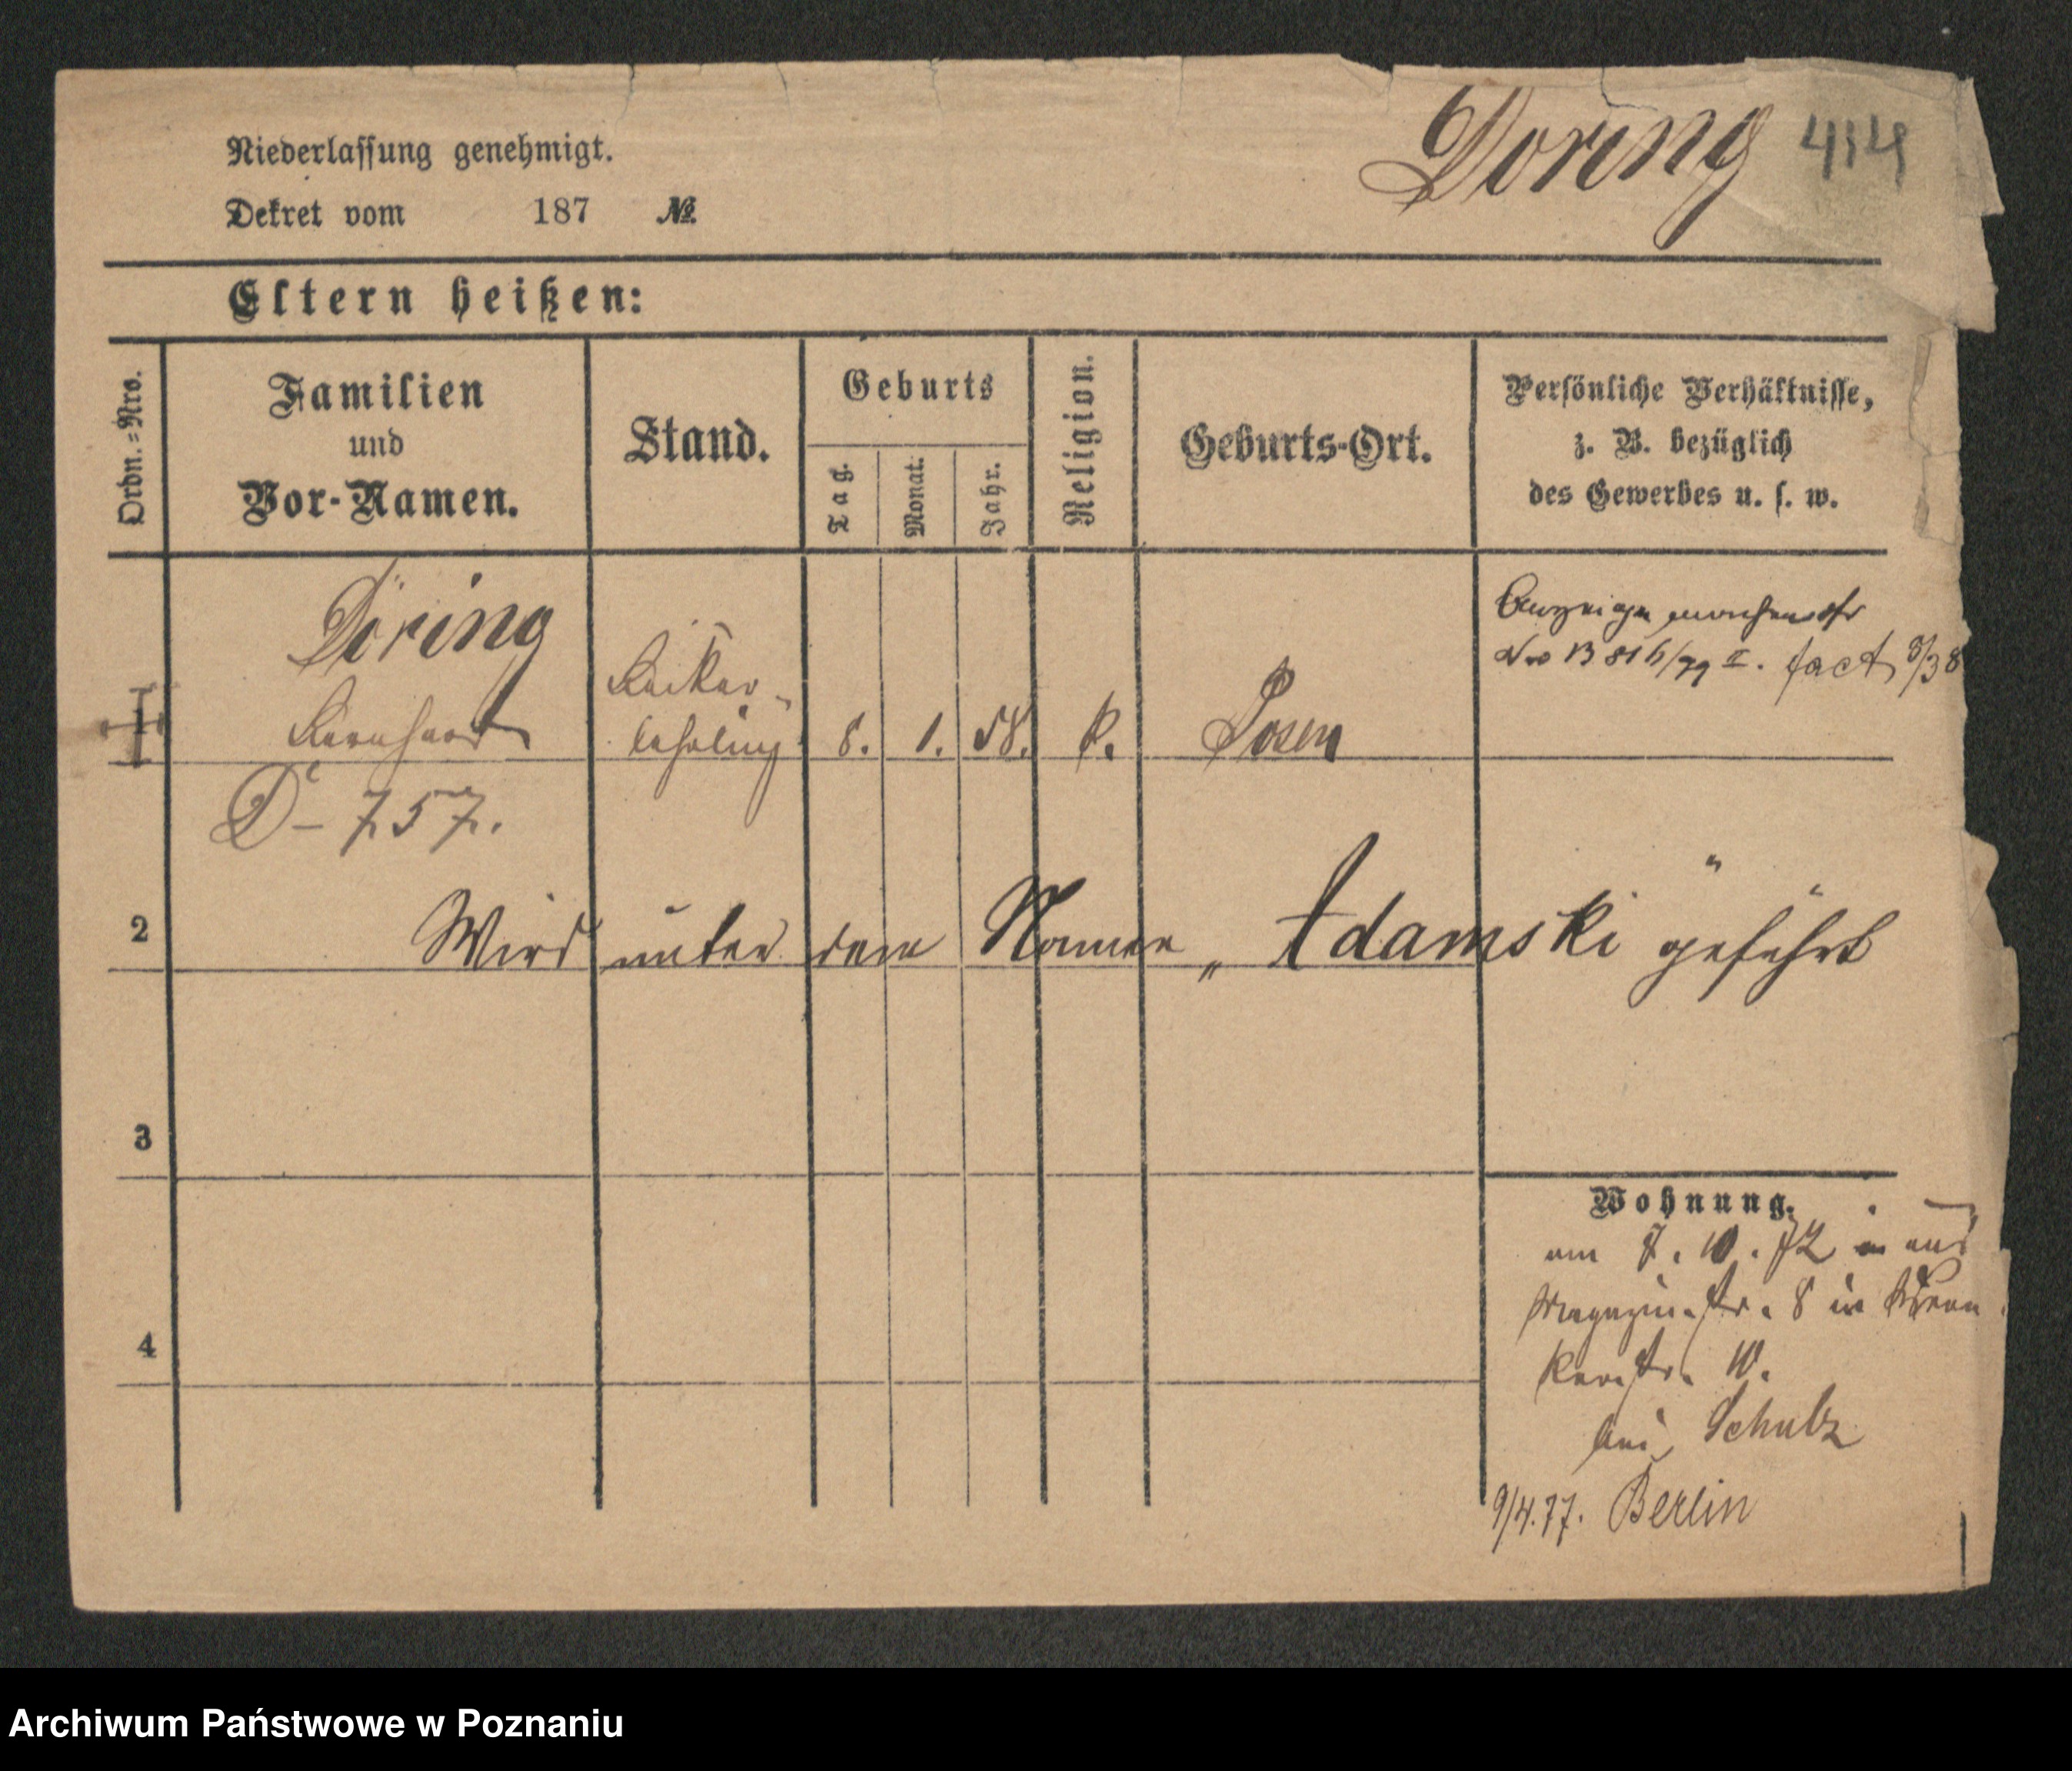 Niederlassung genehmigt.
Dekret vom 187 №
Döring 414
Eltern heißen:
Ordn.=Nro.
Familien
und
Vor-Namen.
Stand.
Geburts
Tag.
Monat.
Jahr.
Religion.
Geburts-Ort.
Persönliche Verhältnisse,
z. B. bezüglich
des Gewerbes u. s. w.
1
Döring
Bernhard
Bäcker-
lehrling
8. 1. 58. k. Posen
No B 816/79 II. fact 3/38
D - 757.
2
Wird unter dem Namen „Adamski" geführt
3
4
Wohnung.
am 8. 10. 72 aus
Magazin-Str. 8 in
Str. 10.
bei Schulz
9/4.77. Berlin
Archiwum Państwowe w Poznaniu